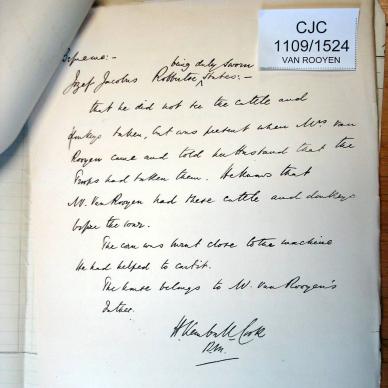 CJC
1109/1524
VAN ROOYEN
Before:-
being duly sworn
Jozef Jacobus States:-
that he did not see the cattle and
donkeys taken, but was present when Mrs van
Rooyen came and told her husband that the
troops had taken them. He knows that
W. van Rooyen had these cattle and donkeys
before the war.
The corn was burnt close to the machine
He had helped to cart it.
The house belongs to W. van Rooyen's
father.
H. Cook
R.M.